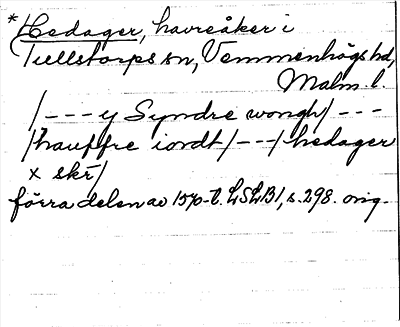 * Hedager, havreåker i
Tullstorps sn, Vemmenhögs hd,
Malm. l.
/---y Syndre wongh/---
/hauffre iordt/---/hedager
x skr/
förra delen av 1570-t. LSLB1, s. 298. orig.